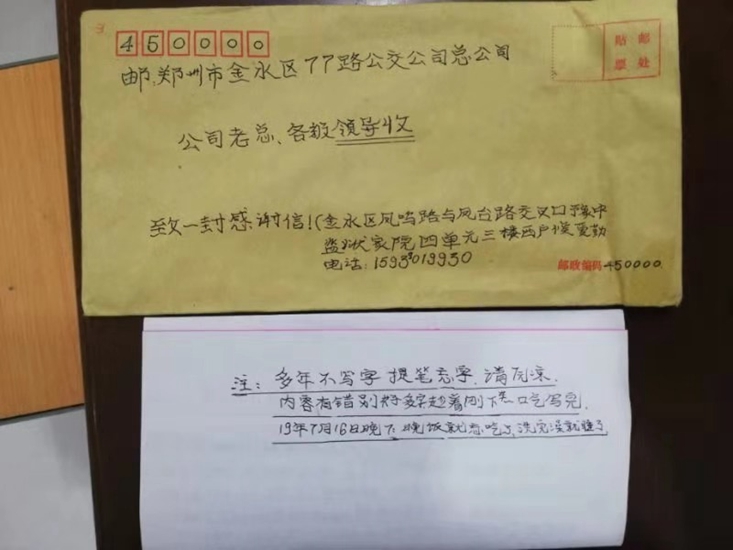 450000
贴 邮
票 处
邮:郑州市金水区77路公交公司总公司
公司老总、各级领导收
致一封感谢信!(金水区凤鸣路与凤台路交叉口豫中
监狱家院四单元三楼西户侯爱勤
电话:15939019930
邮政编码 450000
注:多年不写字 提笔忘字.请原谅.
内容有错别
19年7月16日晚下 晚饭就忘吃了,洗完澡就睡了